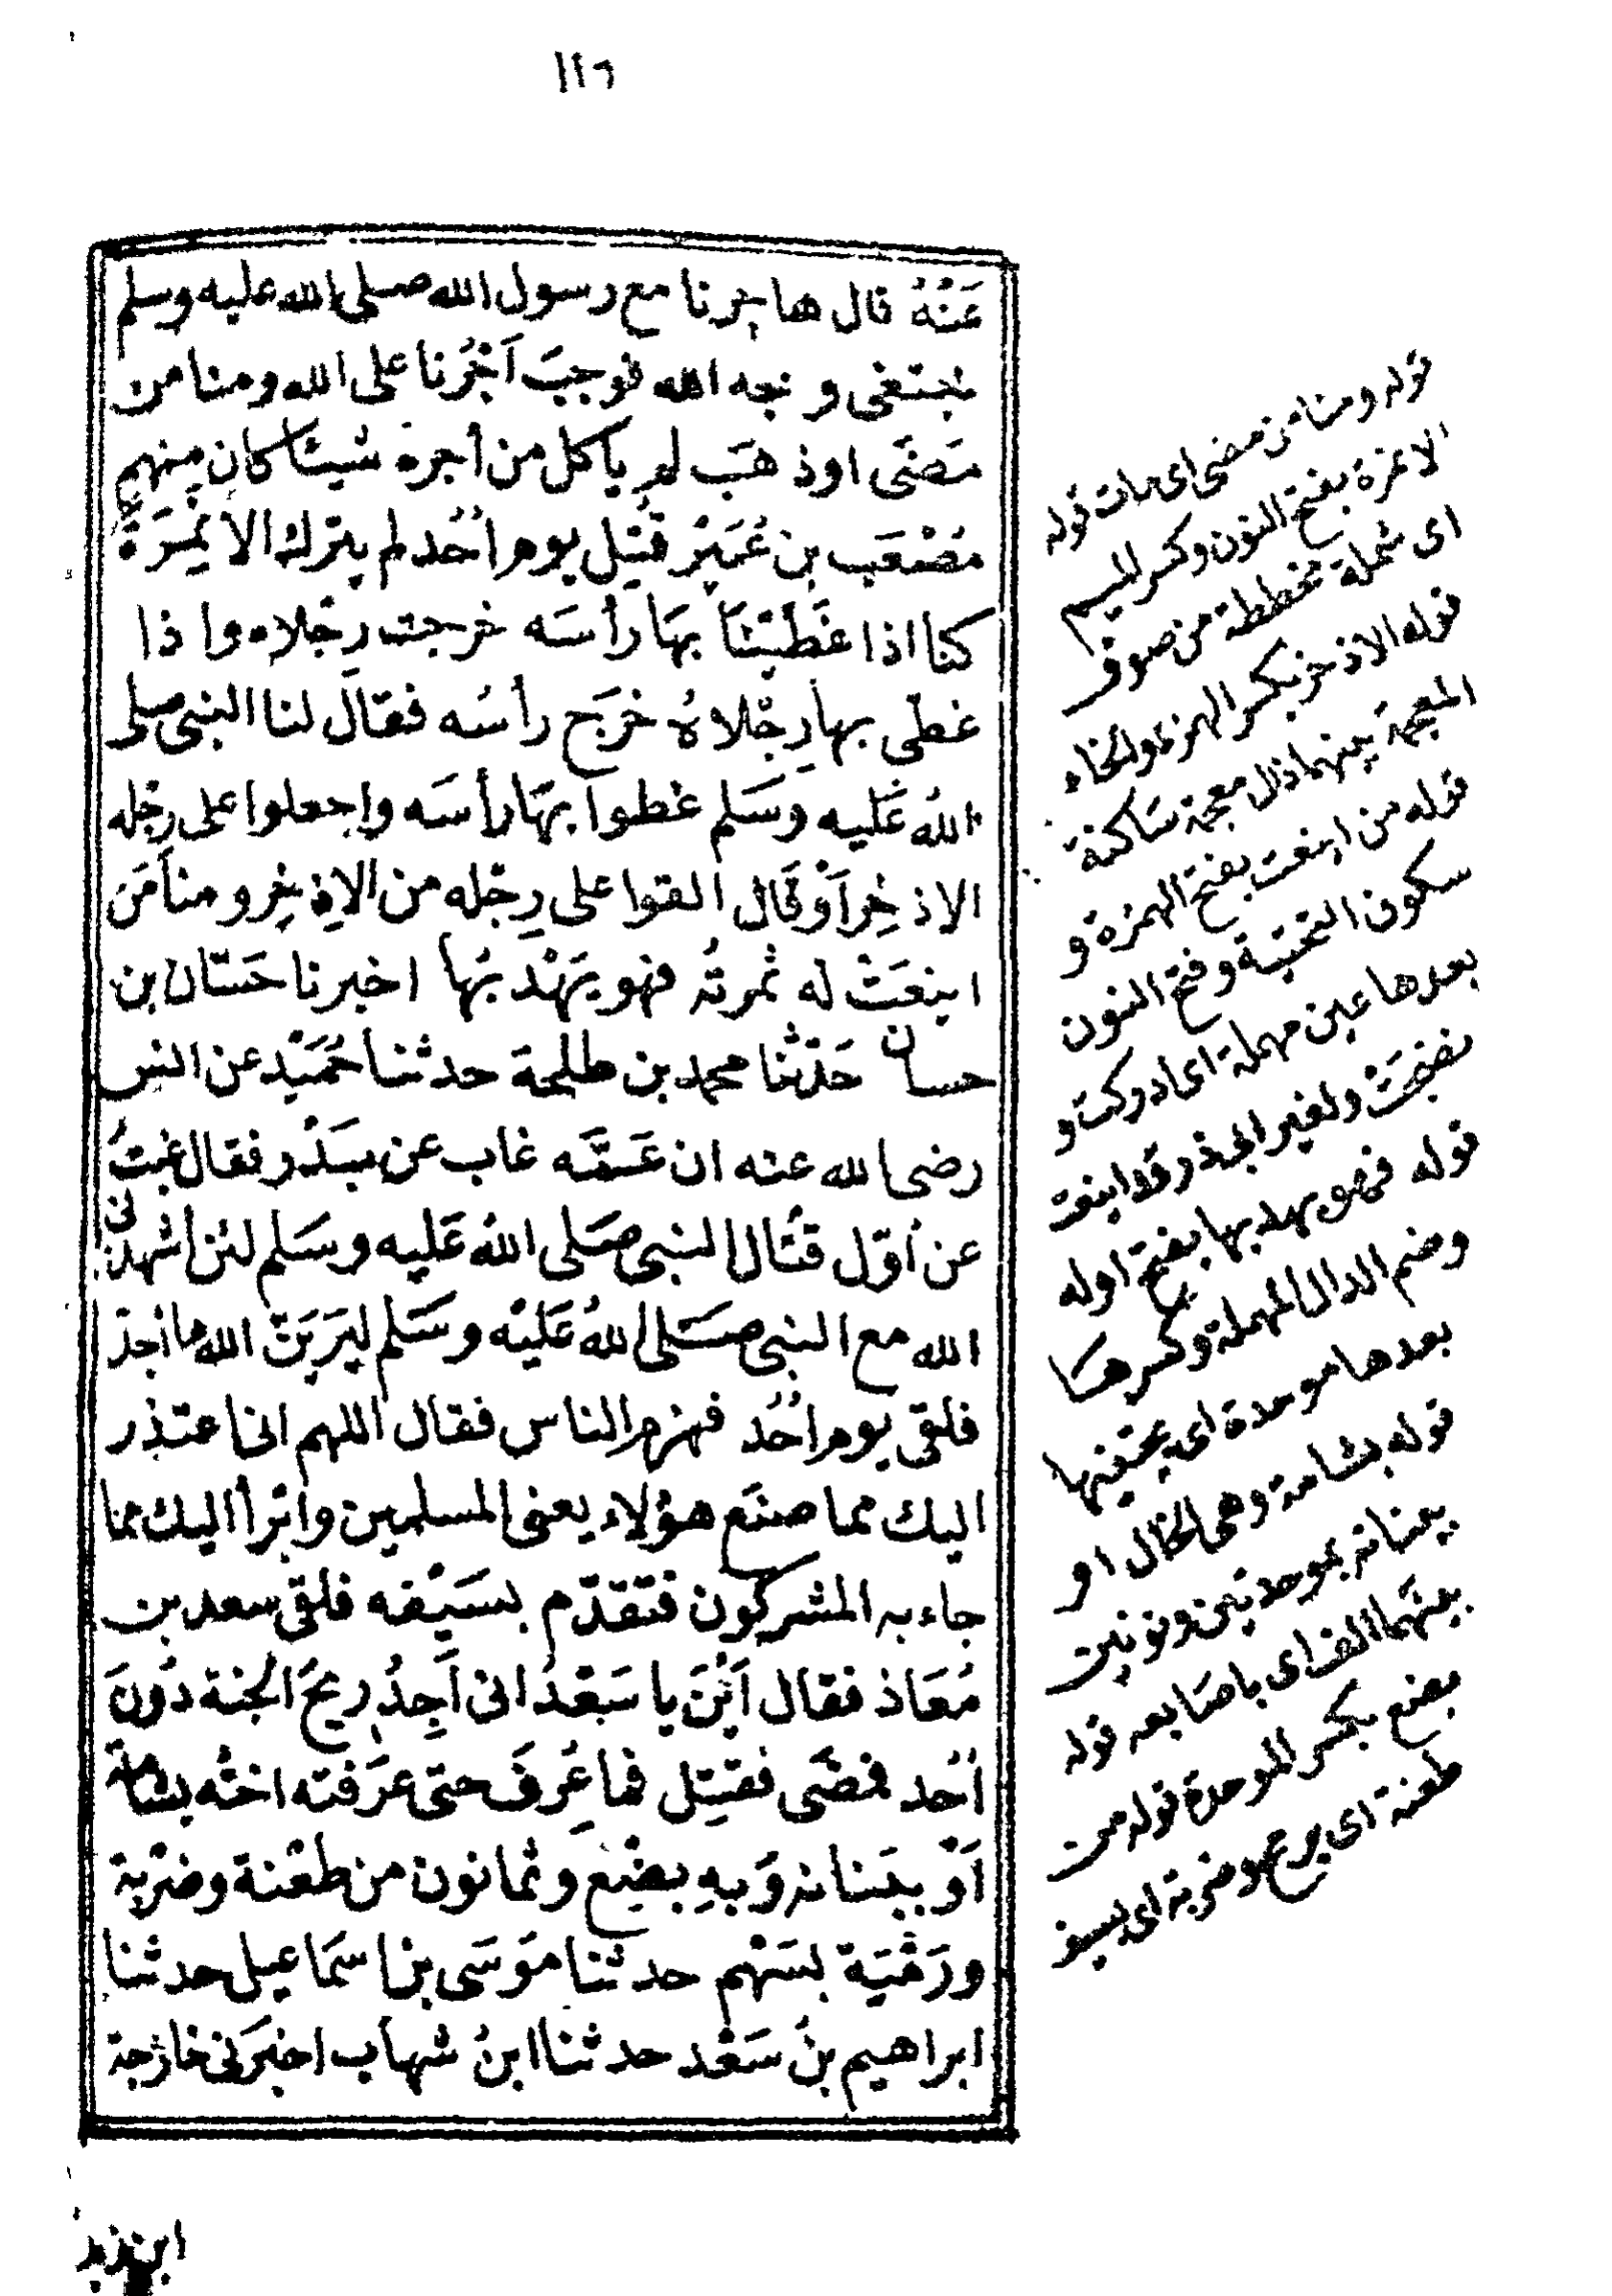 ١١٦
عَنْهُ قال هاجرنا مع رسول الله صلى الله عليه وسلم
نبتغى وجه الله فوجبَ اَجْرُنا على الله ومنا من
مَضَى اوذهَبَ لم ياكل من أجره شيئا كان منهم
مُصْعَب بن عُمَيْر قُتِل يوم اُحُد لم يترك الا نَمِرَةً
كنا اذا غَطَّيْنَا بهَا رأسَه خرجت رِجْلاه واذا
غطى بها رِجْلاهُ خرَج رأسُه فقال لنا النبى صلى
اللهُ عَليه وسَلم غطوا بهَا رأسَه واجعلوا على رِجْله
الاذخِر اَوْ قَال القوا على رِجْله من الاِذْخِر ومنا مَن
اينعَتْ له ثمرتُه فهو يَهْدبُها اخبرنا حَسّان بن
حسان حَدّثنا محمد بن طلحة حدثنا حُمَيْد عن انس
رضى الله عنه ان عَمَّه غاب عن بَدْر فقال غِبتُ
عن أوّل قتَال النبى صَلى اللهُ عَليه وسَلم لئن أشهدنى
الله مع النبى صَلى اللهُ عَلَيْه وسَلم ليَرَيَنّ الله ما اُجِدّ
فلقى يوم اُحُد فهزم الناس فقال اللهم انى اعتذر
اليك مما صنَع هؤلاء يعنى المسلمين وابرأ اليك مما
جاء به المشركون فتقدّم بسَيْفه فلقى سعد بن
مُعَاذ فقال اَيْنَ يا سَعْدُ انى اَجِدُ ريحَ الجنة دُونَ
اُحُد فمضَى فقتِل فما عُرِفَ حتى عرَفته اختُه بشامة
اَوْ ببَنانه وَبهِ بضْع وثمانون من طعْنة وضرْبة
ورَمْيَة بسَهْم حدثنا مُوسَى بن اسمَاعيل حدثنا
ابراهيم بنُ سَعْد حدثنا ابنُ شهاب اخبَرنى خارجة
ابن زيد
قوله ومنا من مضى اى مات قوله
الا نمرة بفتح النون وكسر الميم
اى شملة مخططة من صوف
قوله الاذخر بكسر الهمزة والخاء
المعجمة بينهما ذال معجمة ساكنة
قوله من اينعت بفتح الهمزة و
سكون التحتية وفتح النون
بعدها عين مهملة اى ادركت و
نضجت ولغير ابى ذر قد اينعت
قوله فهو يهدبها بفتح اوله
وضم الدال المهملة وكسرها
بعدها موحدة اى يجتنيها
قوله بشامة وهى الخال او
ببنانه بموحدتين ونونين
بينهما الف اى باصابعه قوله
بضع بكسر الموحدة قوله من
طعنة اى برمح وضربة اى بسيف